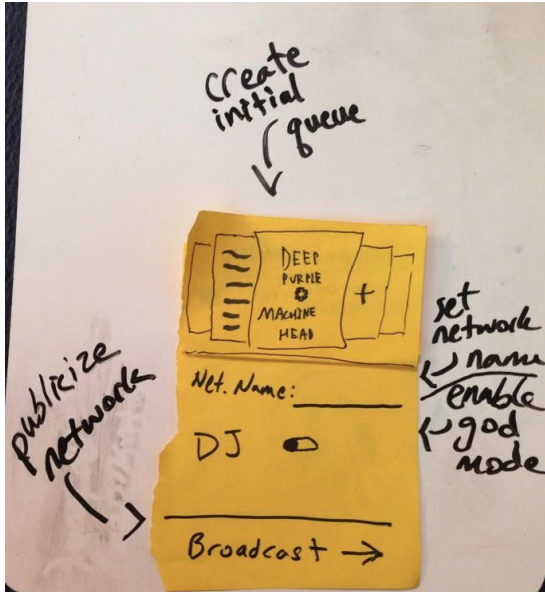 create
initial
queue
DEEP
PURPLE
MACHINE
HEAD
+
set
network
name
Net. Name:
enable
god
mode
DJ
publicize
network
Broadcast →